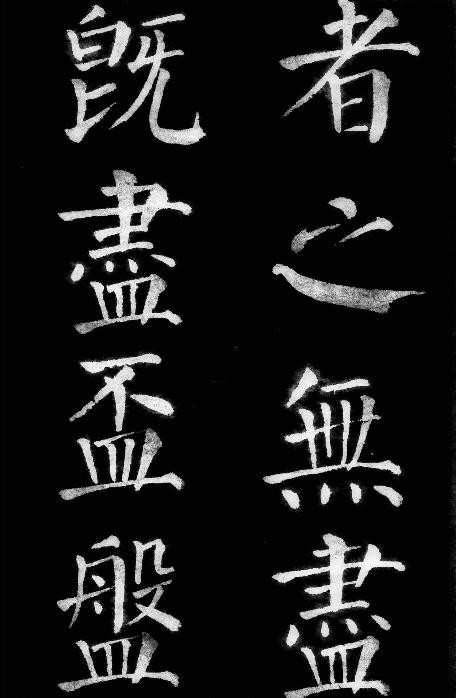 者之無盡
既盡盃盤